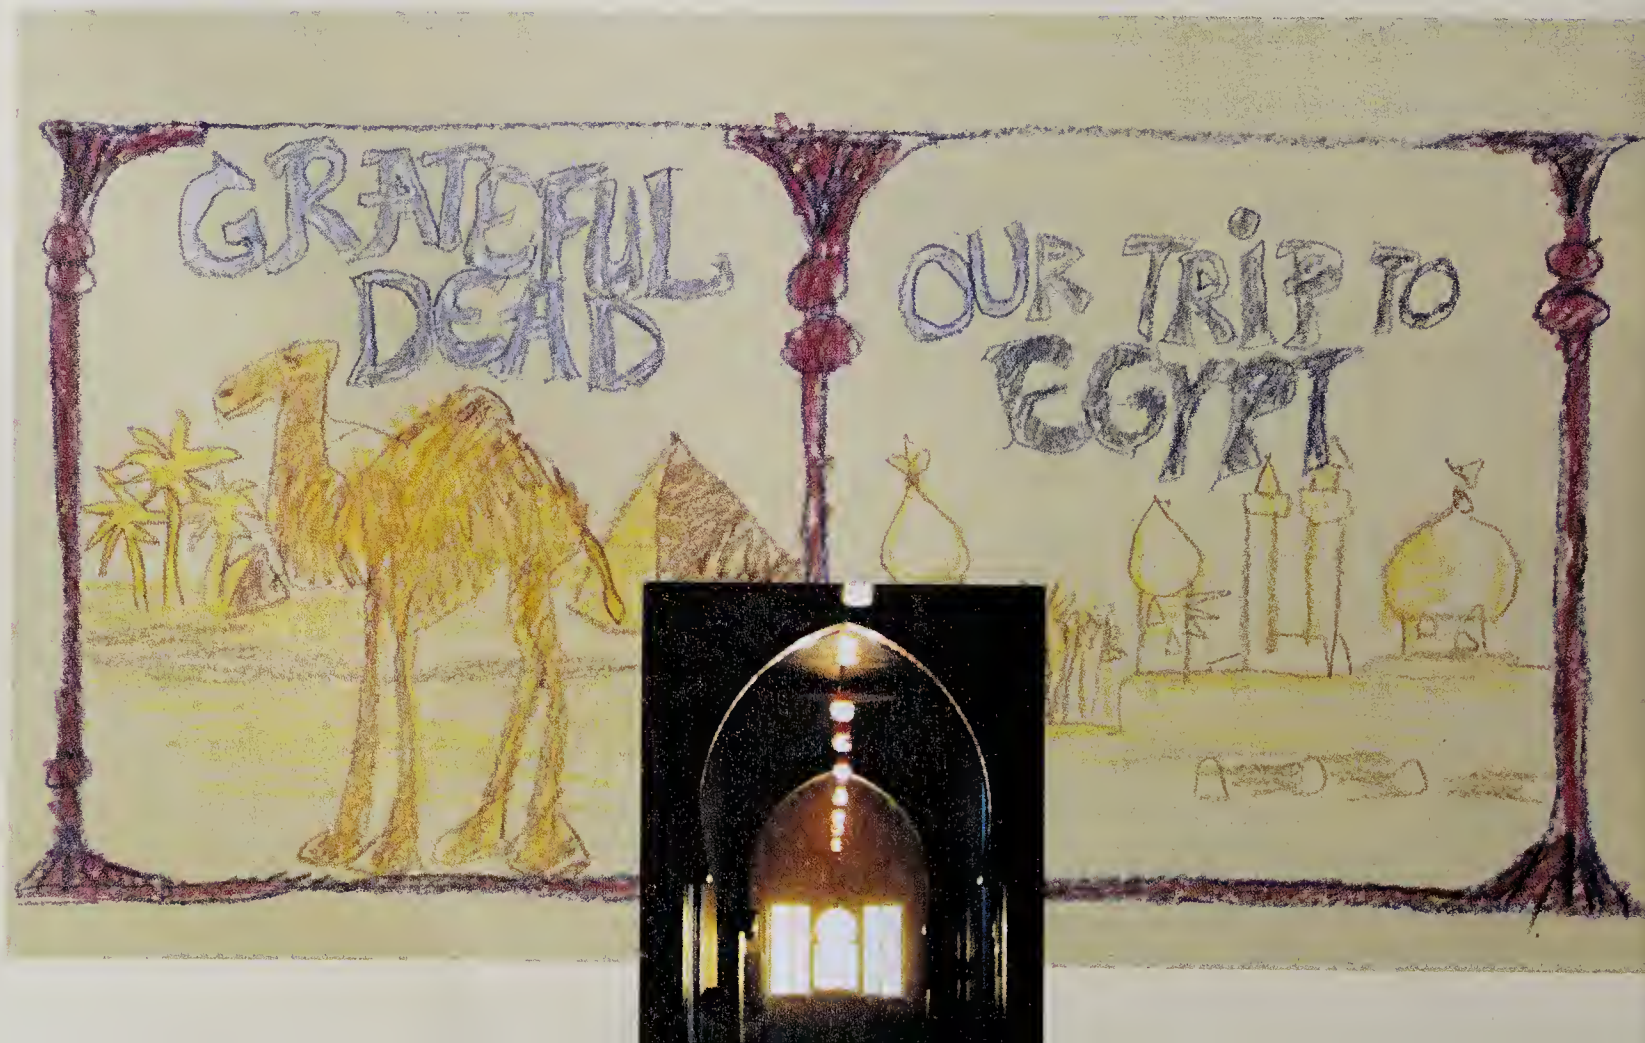 GRATEFUL
DEAD
OUR TRiP TO
EGYPT